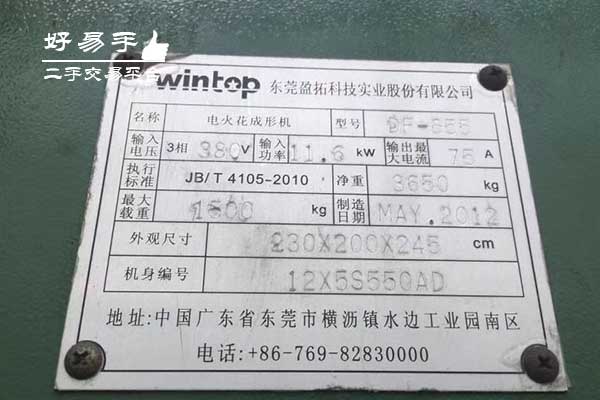 好易手
二手交易平台
wintop 东莞盈拓科技实业股份有限公司
名称 电火花成形机 型号
输入电压 3相 380 V 输入功率 11.6 kW 输出最大电流 75 A
执行标准 JB/T 4105-2010 净重 3650 kg
最大载重 1500 kg 制造日期 MAY.2012
外观尺寸 230X200X245 cm
机身编号 12X5S550AD
地址:中国广东省东莞市横沥镇水边工业园南区
电话:+86-769-82830000